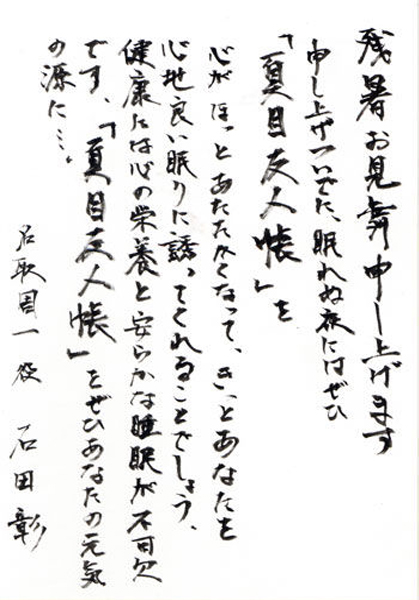 残暑お見舞申し上げます
申し上げついでた、眠れぬ夜にはぜひ
「夏目友人帳」を
心がほっとあたたかくなって、きっとあなたを
心地良い眠りに誘ってくれることでしょう、
健康には心の栄養と安らかな睡眠が不可欠
です、「夏目友人帳」をぜひあなたの元気
の源に…。
名取周一役 石田彰